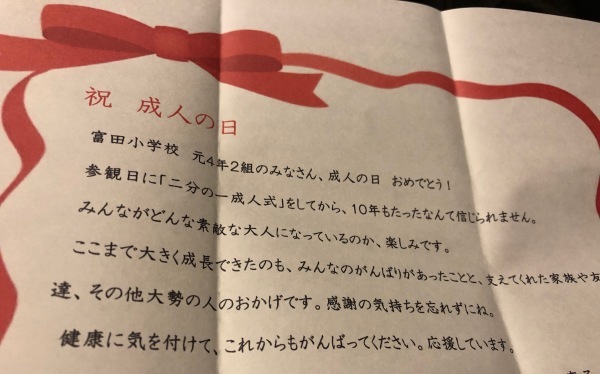 祝 成人の日
富田小学校 元4年2組のみなさん、成人の日 おめでとう!
参観日に「二分の一成人式」をしてから、10年もたったなんて信じられません。
みんながどんな素敵な大人になっているのか、楽しみです。
ここまで大きく成長できたのも、みんなのがんばりがあったことと、支えてくれた家族や友
達、その他大勢の人のおかげです。感謝の気持ちを忘れずにね。
健康に気を付けて、これからもがんばってください。応援しています。